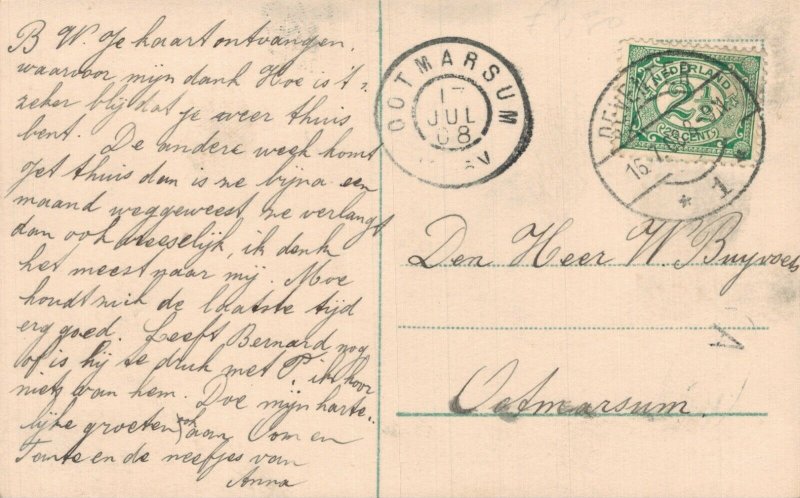 B W. Je kaart ontvangen,
waarvoor mijn dank Hoe is 't;
zeker blij dat je weer thuis
bent. De andere week komt
Jet thuis dan is ze bijna een
maand weggeweest, ze verlangt
dan ook vreeselijk, ik denk
het meest naar mij. Moe
houdt zich de laatste tijd
erg goed. Leeft Bernard nog
of is hij te druk met P? ik hoor
niets van hem. Doe mijn harte-
lijke groeten ook aan Oom en
Tante en de neefjes van
Anna
OOTMARSUM
17
JUL
08
NEDERLAND
2½
(2½ CENT)
1
Den Heer W. Buyvoets
Ootmarsum.